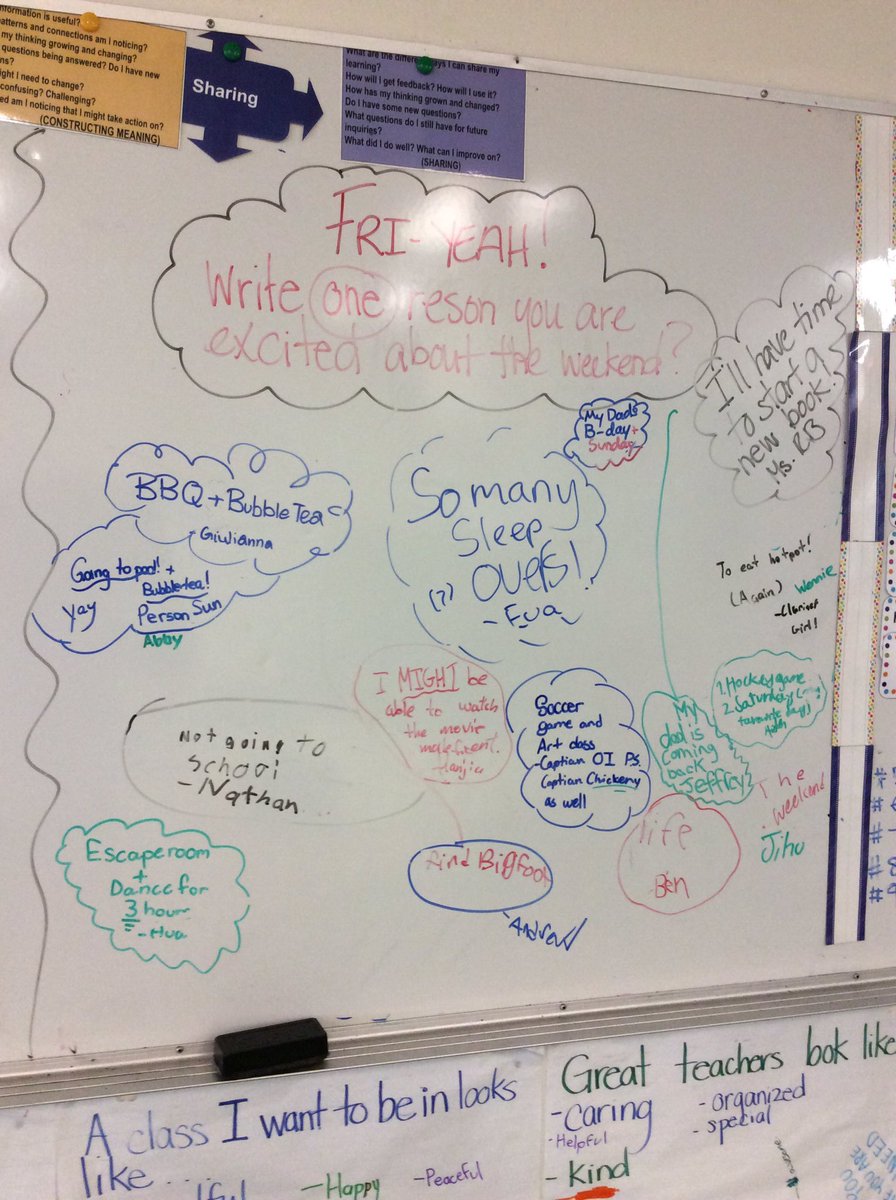 information is useful?
atterns and connections am I noticing?
my thinking growing and changing?
questions being answered? Do I have new
ns?
ight I need to change?
confusing? Challenging?
ed am I noticing that I might take action on?
(CONSTRUCTING MEANING)
Sharing
What are the different ways I can share my
learning?
How will I get feedback? How will I use it?
How has my thinking grown and changed?
Do I have some new questions?
What questions do I still have for future
inquiries?
What did I do well? What can I improve on?
(SHARING)
FRI-YEAH!
Write one reson you are
excited about the weekend?
I'll have time
to start a
new book!
Ms. RB
My Dads
B-day
Sunday
BBQ + Bubble Tea
Giulianna
Going to pool! +
Bubble tea!
yay
Person Sun
Abby
So many
Sleep
overs!
(7)
-Eva
To eat hotpot!
(Again)
Girl!
I MIGHT be
able to watch
the movie
Soccer
game and
Art class
-Captian OI PS.
Captian Chickeny
as well
My
dad is
coming
back
Jeffrey
1. Hockey game
2. Saturday
favourite day)
Not going to
school
-Nathan
The
weekend
Jihu
life
Ben
find Bigfoot
-Andrew
Escape room
+
Dance for
3 hour
-Hua
A class I want to be in looks
like...
-Happy
-Peaceful
Great teachers look like
-Caring
-Helpful
-Kind
-organized
-special